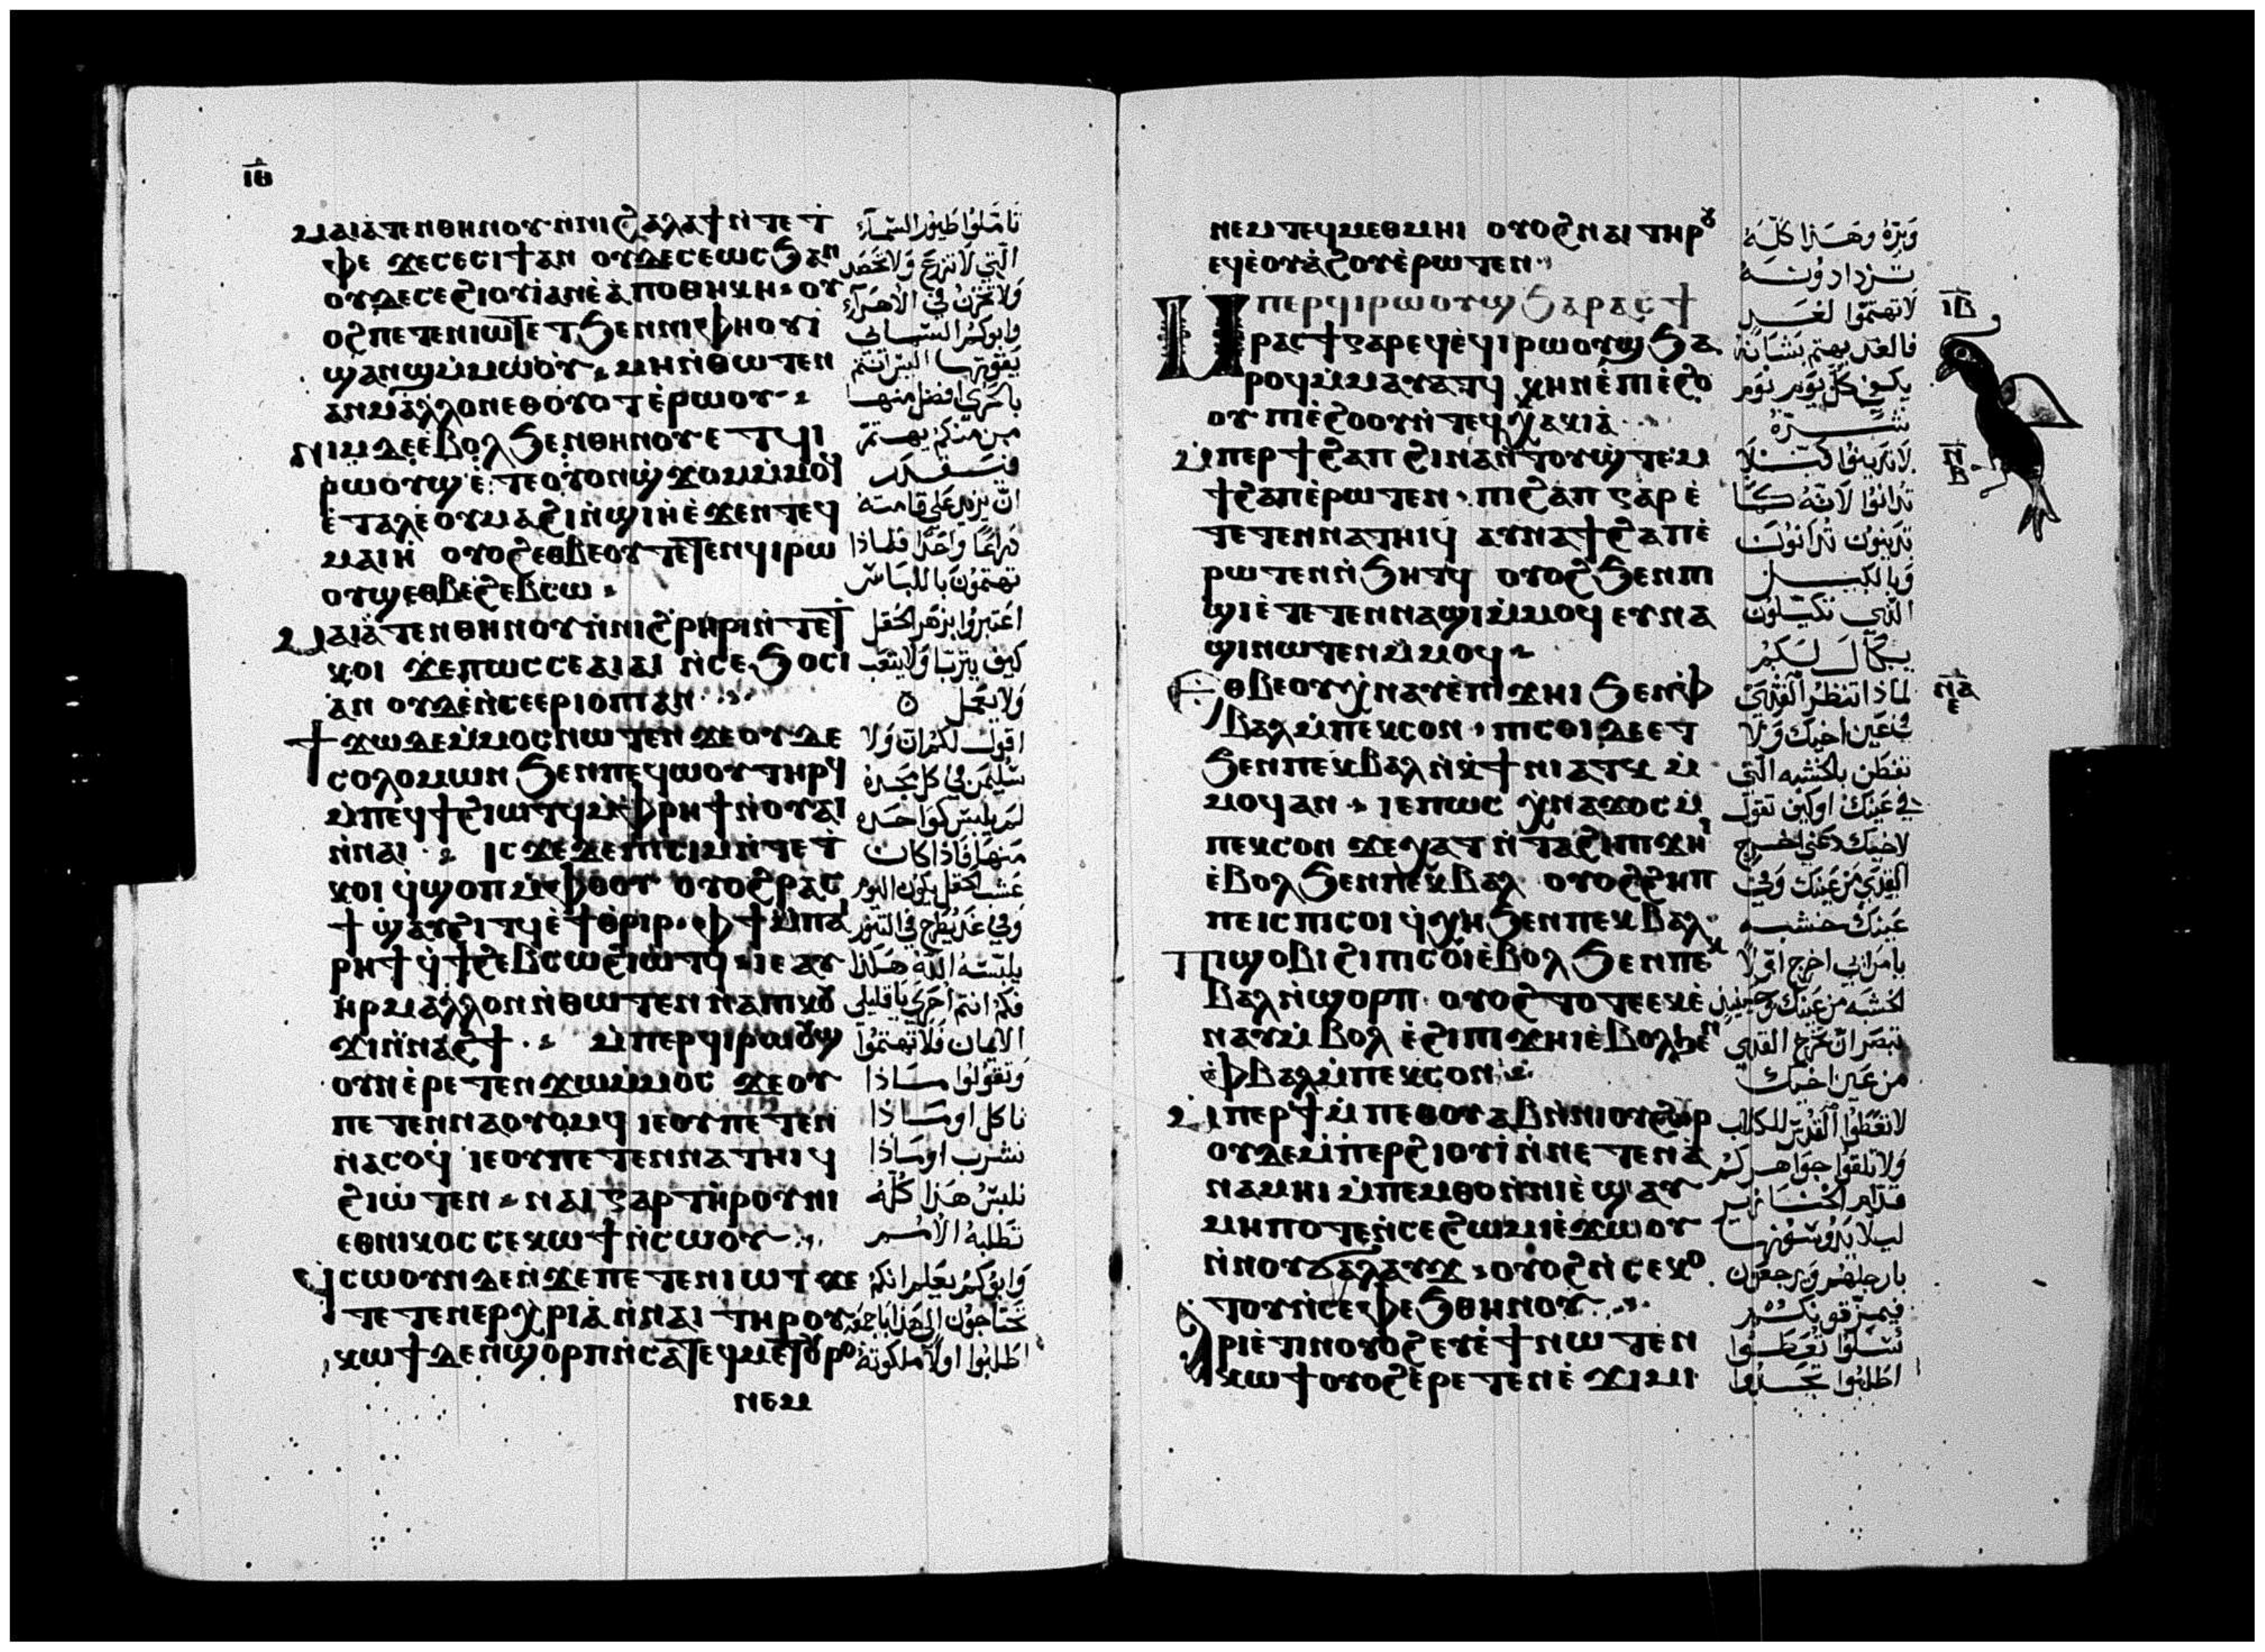 ⲓⲑ
ⲙⲁⲓⲁⲧⲉⲛⲑⲏⲛⲟⲩ ⲛ̀ⲛⲓϩⲁⲗⲁϯ ⲛ̀ⲧⲉⲧ
ⲫⲉ ϫⲉⲥⲉⲥⲓϯⲁⲛ ⲟⲩⲇⲉⲥⲉⲱⲥϧⲁⲛ
ⲟⲩⲇⲉⲥⲉϩⲓⲟⲩⲓ̀ⲁⲛⲉ̀ⲁ̀ⲡⲟⲑⲏⲕⲏ ⲟⲩ
ⲟϩ ⲡⲉⲧⲉⲛⲓⲱⲧ ⲉⲧϧⲉⲛⲛⲓⲫⲏⲟⲩⲓ̀
ϣⲁⲛϣ ⲙ̀ⲙⲱⲟⲩ ⲙⲏ ⲛ̀ⲑⲱⲧⲉⲛ
ⲁⲛⲙⲁⲗⲗⲟⲛ ⲉⲑⲟⲩⲟⲧ ⲉ̀ⲣⲱⲟⲩ
ⲛⲓⲙ ⲇⲉ ⲉ̀ⲃⲟⲗ ϧⲉⲛⲑⲏⲛⲟⲩ ⲉⲧϥⲓ
ⲣⲱⲟⲩϣ ⲉ̀ⲧⲉⲟⲩⲟⲛϣϫⲟⲙ ⲙ̀ⲙⲟϥ
ⲉ̀ⲧⲁⲗⲉ ⲟⲩⲙⲁϩⲓ ⲛ̀ϣⲓⲏ ⲉ̀ϫⲉⲛ ⲧⲉϥ
ⲙⲁⲓⲏ̀ ⲟⲩⲟϩ ⲉⲑⲃⲉⲟⲩ ⲧⲉⲧⲉⲛϥⲓⲣⲱ
ⲟⲩϣ ⲉⲑⲃⲉϩⲉⲃⲥⲱ
ⲙⲁⲓⲁⲧⲉⲛⲑⲏⲛⲟⲩ ⲛ̀ⲛⲓϩⲣⲏⲣⲓ ⲛ̀ⲧⲉⲧ
ⲕⲟⲓ ϫⲉⲡⲱⲥ ⲥⲉⲁⲓⲁⲓ ⲛ̀ⲥⲉϧⲟⲥⲓ
ⲁⲛ ⲟⲩⲇⲉ ⲛ̀ⲥⲉⲉⲣⲓⲟⲡⲓ ⲁⲛ
ϯϫⲱ ⲇⲉ ⲙ̀ⲙⲟⲥ ⲛⲱⲧⲉⲛ ϫⲉⲟⲩⲇⲉ
ⲥⲟⲗⲟⲙⲱⲛ ϧⲉⲛⲡⲉϥⲱⲟⲩ ⲧⲏⲣϥ
ⲙ̀ⲡⲉϥϯϩⲓⲱⲧϥ ⲙ̀ⲫⲣⲏϯ ⲛ̀ⲟⲩⲁⲓ
ⲛ̀ⲛⲁⲓ ⲓⲥϫⲉ ⲇⲉ ⲡⲓⲥⲓⲙ ⲛ̀ⲧⲉⲧ
ⲕⲟⲓ ϥϣⲟⲡ ⲙ̀ⲫⲟⲟⲩ ⲟⲩⲟϩ ⲣⲁⲥ
ϯ ϣⲁⲩϩⲓⲧϥ ⲉ̀ϯⲑⲣⲓⲣ ⲫϯ ⲙ̀ⲡⲁⲓ
ⲣⲏϯ ϥϯϩⲉⲃⲥⲱ ϩⲓⲱⲧϥ ⲓⲉ ⲁⲩ
ⲏⲣ ⲙⲁⲗⲗⲟⲛ ⲛ̀ⲑⲱⲧⲉⲛ ⲛⲁⲡⲓⲕⲟⲩ
ϫⲓⲛ̀ⲛⲁϩϯ ⲙ̀ⲡⲉⲣϥⲓⲣⲱⲟⲩϣ
ⲟⲩⲛ ⲉ̀ⲣⲉⲧⲉⲛϫⲱ ⲙ̀ⲙⲟⲥ ϫⲉⲟⲩ
ⲡⲉⲧⲉⲛⲛⲁⲟⲩⲟⲙϥ ⲓⲉ ⲟⲩ ⲡⲉⲧⲉⲛ
ⲛⲁⲥⲟϥ ⲓⲉ ⲟⲩ ⲡⲉⲧⲉⲛⲛⲁⲧⲏⲓϥ
ϩⲓⲱⲧⲉⲛ ⲛⲁⲓ ⲅⲁⲣ ⲧⲏⲣⲟⲩ ⲛⲓ
ⲉⲑⲛⲓⲕⲟⲥ ⲥⲉⲕⲱϯ ⲛ̀ⲥⲱⲟⲩ
ϥⲥⲱⲟⲩⲛ ⲇⲉ ⲛ̀ϫⲉ ⲡⲉⲧⲉⲛⲓⲱⲧ ϫⲉ
ⲧⲉⲧⲉⲛⲉⲣⲭⲣⲓⲁ ⲛ̀ⲛⲁⲓ ⲧⲏⲣⲟⲩ
ⲕⲱϯ ⲇⲉ ⲛ̀ϣⲟⲣⲡ ⲛ̀ⲥⲁ ⲧⲉϥⲙⲉⲧⲟⲩⲣⲟ
ⲛⲉⲙ
تاملوا طيور السماء
التي لا تزرع ولا تحصد
ولا تخزن في الاهراء
وابوكم السمائي
يقوتها اليس انتم
بالحري افضل منها
من منكم يهتم
فيقدر
ان يزيد على قامته
ذراعا واحدا فلماذا
تهتمون باللباس
اعتبروا بزهر الحقل
كيف يتربا ولا يتعب
ولا يعمل
اقول لكم ان ولا
سليمن في كل مجده
لم يلبس كواحده
منها فاذا كان
عشب الحقل يكون اليوم
وفي غد يطرح في التنور
يلبسه الله هكذا
فكم انتم احرى يا قليلي
الايمان فلا تهتموا
وتقولوا ماذا
ناكل او ماذا
نشرب او ماذا
نلبس هذا كله
تطلبه الامم
وابوكم يعلم انكم
تحتاجون الى هذا باجمعه
اطلبوا اولا ملكوته
ⲛⲉⲙ ⲧⲉϥⲙⲉⲑⲙⲏⲓ ⲟⲩⲟϩ ⲛⲁⲓ ⲧⲏⲣⲟⲩ
ⲉⲩⲉ̀ⲟⲩⲁϩⲟⲩ ⲉ̀ⲣⲱⲧⲉⲛ
ⲙⲡⲉⲣϥⲓⲣⲱⲟⲩϣ ϧⲁ ⲣⲁⲥϯ
ⲣⲁⲥϯ ⲅⲁⲣ ⲉϥⲉ̀ϥⲓⲣⲱⲟⲩϣ ϧⲁ
ⲣⲟϥ ⲙ̀ⲙⲁⲩⲁⲧϥ ⲕⲏⲛ ⲉ̀ⲡⲓⲉ̀ϩⲟ
ⲟⲩ ⲡⲓⲉ̀ϩⲟⲟⲩ ⲛ̀ⲧⲉϥⲕⲁⲕⲓⲁ
ⲙ̀ⲡⲉⲣϯϩⲁⲡ ϩⲓⲛⲁ ⲛ̀ⲧⲟⲩϣⲧⲉⲙ
ϯϩⲁⲡ ⲉ̀ⲣⲱⲧⲉⲛ ⲡⲓϩⲁⲡ ⲅⲁⲣ ⲉ̀
ⲧⲉⲧⲉⲛⲛⲁⲧⲏⲓϥ ⲁⲩⲛⲁϯϩⲁⲡ ⲉ̀
ⲣⲱⲧⲉⲛ ⲛ̀ϧⲏⲧϥ ⲟⲩⲟϩ ϧⲉⲛ ⲡⲓ
ϣⲓ ⲉ̀ⲧⲉⲧⲉⲛⲛⲁϣⲓ ⲙ̀ⲙⲟϥ ⲉⲩⲛⲁ
ϣⲓ ⲛⲱⲧⲉⲛ ⲙ̀ⲙⲟϥ
ⲉⲑⲃⲉⲟⲩ ⲭⲛⲁⲩ ⲉ̀ⲡⲓϫⲏⲓ ϧⲉⲛ ⲫ
ⲃⲁⲗ ⲙ̀ⲡⲉⲕⲥⲟⲛ ⲡⲓⲥⲟⲓ ⲇⲉ ⲉⲧ
ϧⲉⲛ ⲡⲉⲕⲃⲁⲗ ⲛ̀ⲕϯⲛⲓⲁⲧⲕ ⲙ̀
ⲙⲟϥ ⲁⲛ ⲓⲉ ⲡⲱⲥ ⲭⲛⲁϫⲟⲥ ⲙ̀
ⲡⲉⲕⲥⲟⲛ ϫⲉ ⲭⲁⲧ ⲛ̀ⲧⲁϩⲓ ⲡⲓϫⲏⲓ
ⲉ̀ⲃⲟⲗ ϧⲉⲛ ⲡⲉⲕⲃⲁⲗ ⲟⲩⲟϩ ϩⲏⲡ
ⲡⲉ ⲓⲥ ⲡⲓⲥⲟⲓ ϥⲭⲏ ϧⲉⲛ ⲡⲉⲕⲃⲁⲗ
ⲡⲓϣⲟⲃⲓ ϩⲓ ⲡⲓⲥⲟⲓ ⲉ̀ⲃⲟⲗ ϧⲉⲛ ⲡⲉⲕ
ⲃⲁⲗ ⲛ̀ϣⲟⲣⲡ ⲟⲩⲟϩ ⲧⲟⲧⲉ ⲉⲕⲉ̀
ⲛⲁⲩ ⲙ̀ⲃⲟⲗ ⲉ̀ϩⲓ ⲡⲓϫⲏⲓ ⲉ̀ⲃⲟⲗ ϧⲉⲛ
ⲫⲃⲁⲗ ⲙ̀ⲡⲉⲕⲥⲟⲛ
ⲙ̀ⲡⲉⲣϯ ⲙ̀ⲡⲉⲑⲟⲩⲁⲃ ⲛ̀ⲛⲓⲟⲩϩⲱⲣ
ⲟⲩⲇⲉ ⲙ̀ⲡⲉⲣϩⲓⲟⲩⲓ̀ ⲛ̀ⲛⲉⲧⲉⲛⲁ
ⲛⲁⲙⲏⲓ ⲙ̀ⲡⲉⲙⲑⲟ ⲛ̀ⲛⲓⲉ̀ϣⲁⲩ
ⲙⲏⲡⲟⲧⲉ ⲛ̀ⲥⲉϩⲱⲙⲓ ⲉ̀ϫⲱⲟⲩ
ⲛ̀ⲛⲟⲩϭⲁⲗⲁⲩϫ ⲟⲩⲟϩ ⲛ̀ⲥⲉⲕⲟ
ⲧⲟⲩ ⲛ̀ⲥⲉⲫⲉϧ ⲑⲏⲛⲟⲩ
ⲁⲣⲓⲉ̀ⲧⲓⲛ ⲟⲩⲟϩ ⲉⲩⲉ̀ϯ ⲛⲱⲧⲉⲛ
ⲕⲱϯ ⲟⲩⲟϩ ⲉ̀ⲣⲉⲧⲉⲛⲉ̀ϫⲓⲙⲓ
وبره وهذا كله
تزدادونه
لا تهتموا لغد
فالغد يهتم بشانه
يكفي كل يوم يوم
شره
لا تدينوا كيلا
تدانوا لانه كما
تدينون تدانون
وبالكيل
الذي تكيلون
يكال لكم
لماذا تنظر القذى
في عين اخيك ولا
تفطن بالخشبه التي
في عينك او كيف تقول
لاخيك دعني اخرج
القذى من عينك وفي
عينك خشبه
يا مرائي اخرج اولا
الخشبه من عينك وحينيذ
تبصر ان تخرج القذى
من عين اخيك
لا تعطوا القدس للكلاب
ولا تلقوا جواهركم
قدام الخنازير
ليلا تدوسونها
بارجلهم ويرجعون
فيمزقونكم
سلوا تعطوا
اطلبوا تجدوا
ⲓⲃ
ⲛⲃ
ⲛⲁ
ⲉ